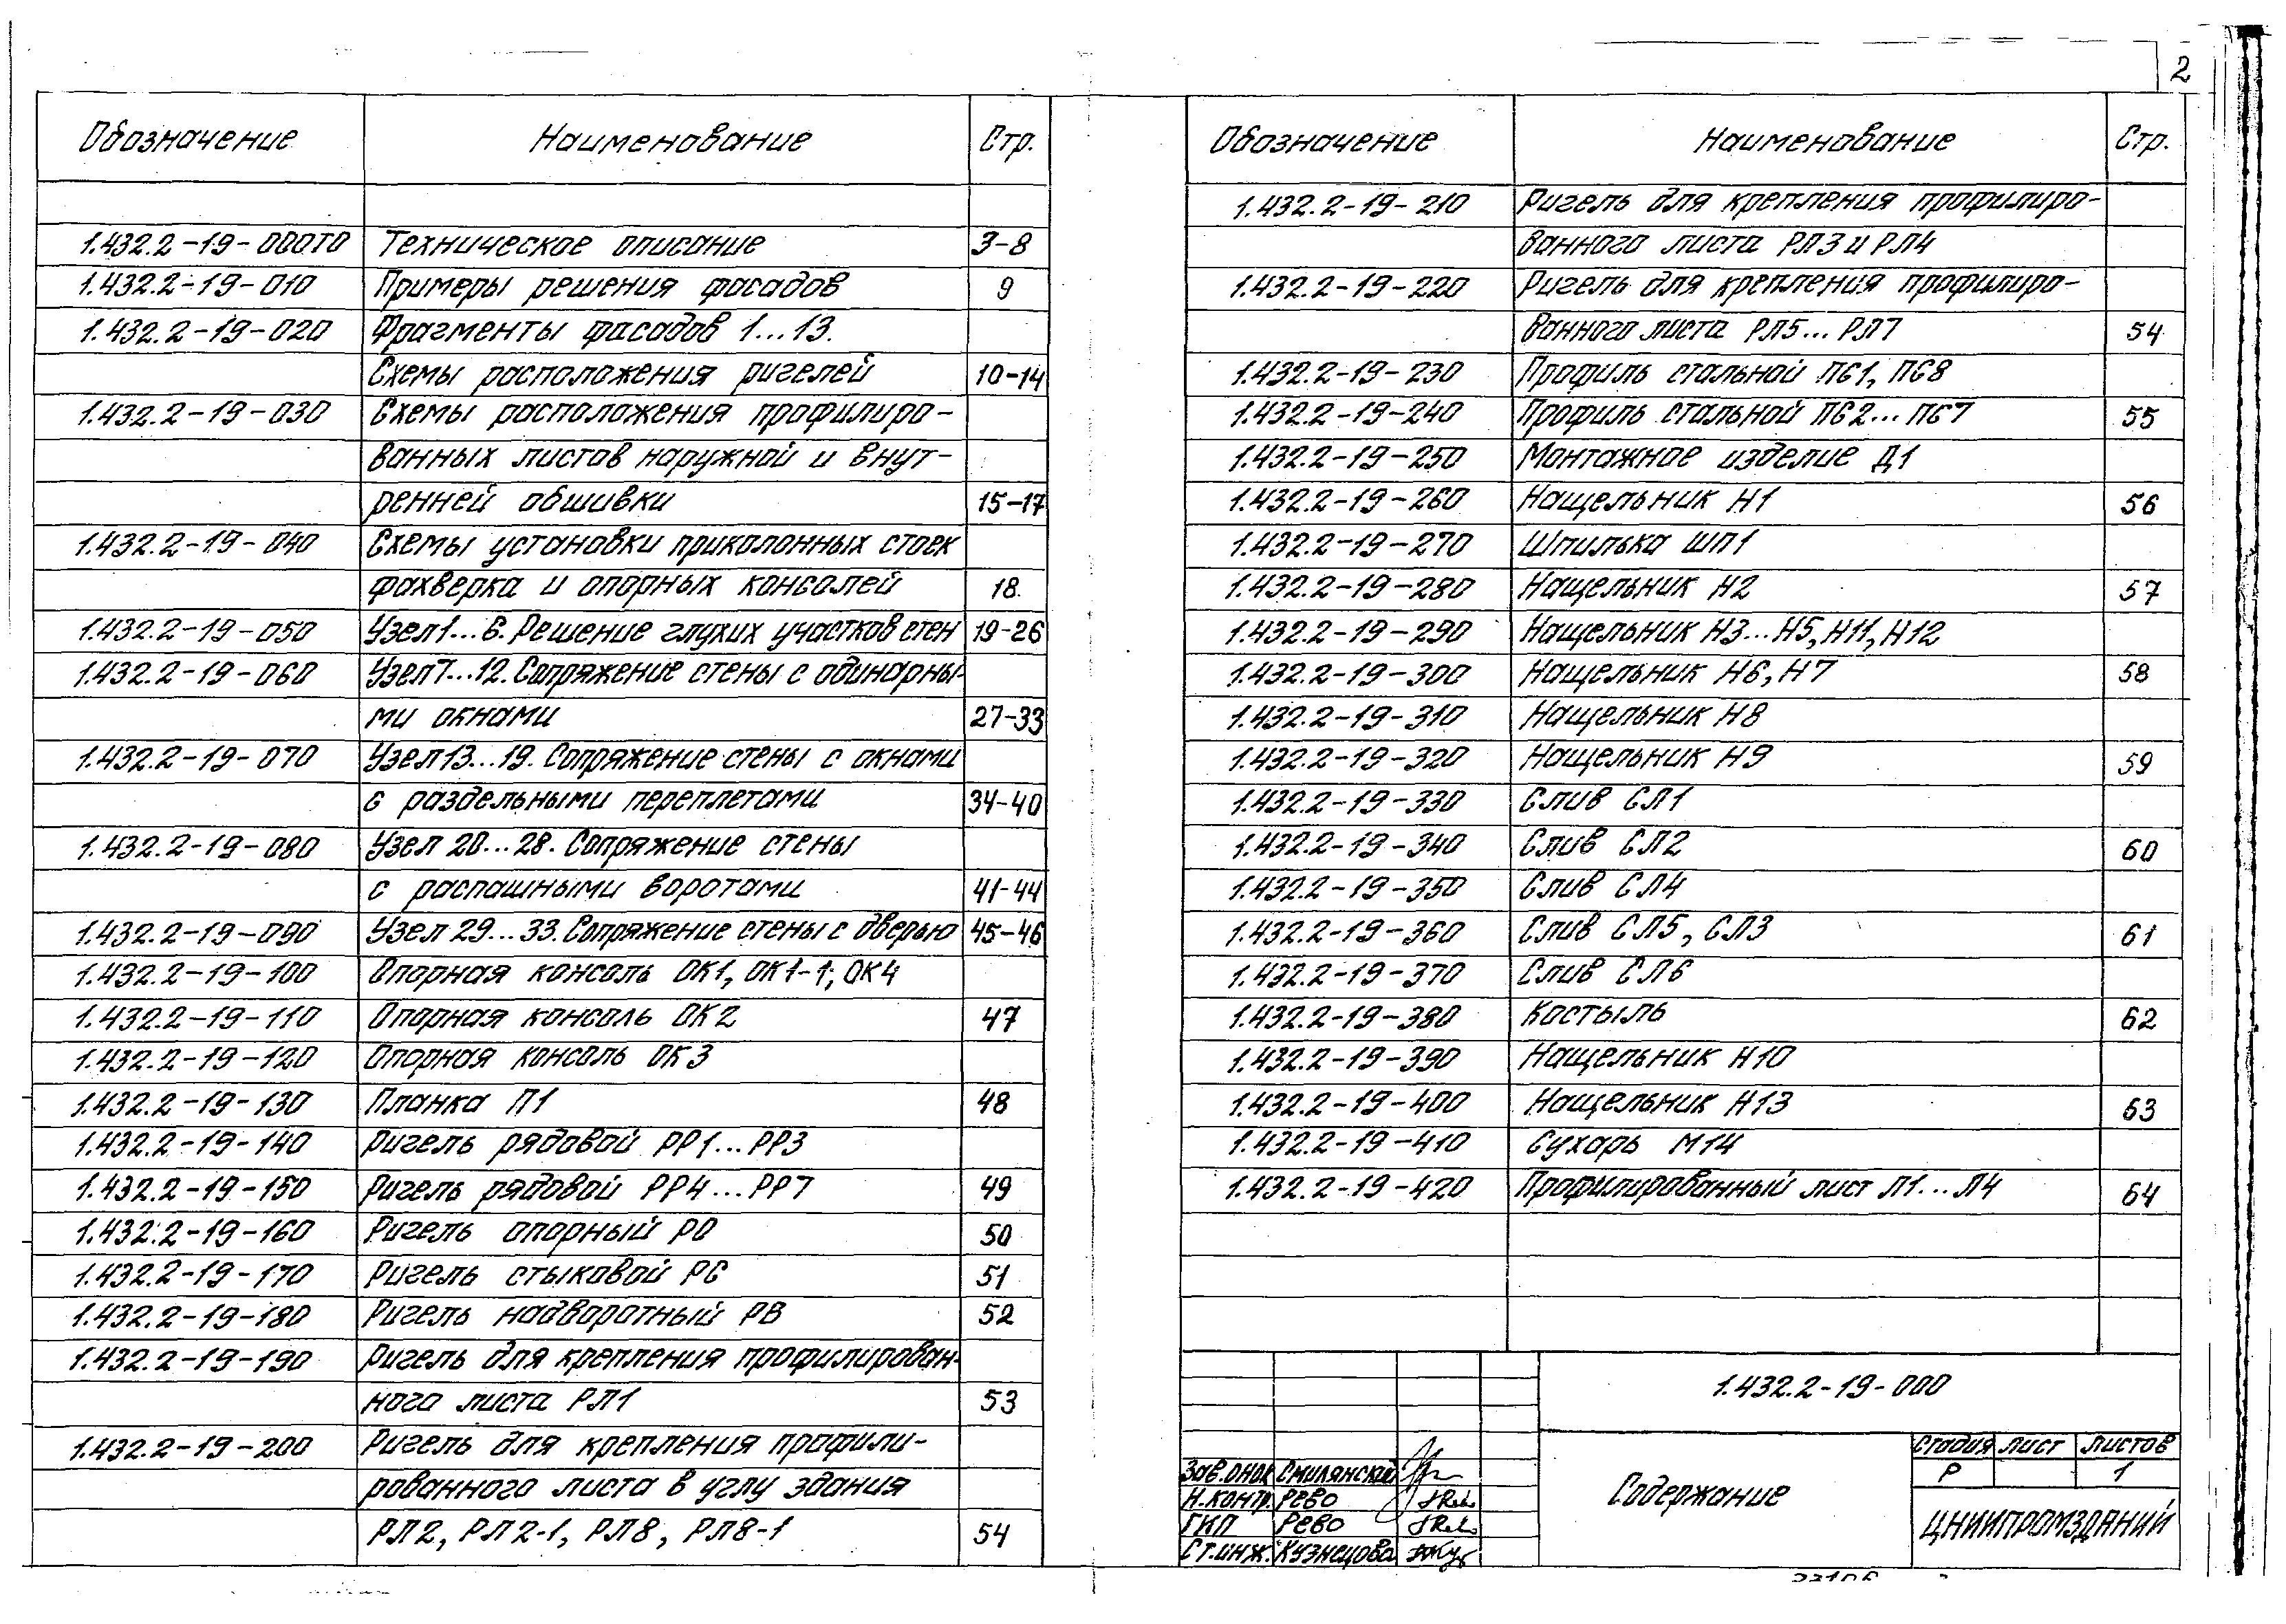 2
Обозначение Наименование Стр.
1.432.2-19-000ТО Техническое описание 3-8
1.432.2-19-010 Примеры решения фасадов 9
1.432.2-19-020 Фрагменты фасадов 1...13.
Схемы расположения ригелей 10-14
1.432.2-19-030 Схемы расположения профилиро-
ванных листов наружной и внут-
ренней обшивки 15-17
1.432.2-19-040 Схемы установки приколонных стоек
фахверка и опорных консолей 18
1.432.2-19-050 Узел 1...6. Решение глухих участков стен 19-26
1.432.2-19-060 Узел 7...12. Сопряжение стены с одинарны-
ми окнами 27-33
1.432.2-19-070 Узел 13...19. Сопряжение стены с окнами
с раздельными переплетами 34-40
1.432.2-19-080 Узел 20...28. Сопряжение стены
с распашными воротами 41-44
1.432.2-19-090 Узел 29...33. Сопряжение стены с дверью 45-46
1.432.2-19-100 Опорная консоль ОК1, ОК1-1, ОК4
1.432.2-19-110 Опорная консоль ОК2 47
1.432.2-19-120 Опорная консоль ОК3
1.432.2-19-130 Планка П1 48
1.432.2-19-140 Ригель рядовой РР1...РР3
1.432.2-19-150 Ригель рядовой РР4...РР7 49
1.432.2-19-160 Ригель опорный РО 50
1.432.2-19-170 Ригель стыковой РС 51
1.432.2-19-180 Ригель надворотный РВ 52
1.432.2-19-190 Ригель для крепления профилирован-
ного листа РЛ1 53
1.432.2-19-200 Ригель для крепления профили-
рованного листа в углу здания
РЛ2, РЛ2-1, РЛ8, РЛ8-1 54
Обозначение Наименование Стр.
1.432.2-19-210 Ригель для крепления профилиро-
ванного листа РЛ3 и РЛ4
1.432.2-19-220 Ригель для крепления профилиро-
ванного листа РЛ5...РЛ7 54
1.432.2-19-230 Профиль стальной ПС1, ПС8
1.432.2-19-240 Профиль стальной ПС2...ПС7 55
1.432.2-19-250 Монтажное изделие Д1
1.432.2-19-260 Нащельник Н1 56
1.432.2-19-270 Шпилька ШП1
1.432.2-19-280 Нащельник Н2 57
1.432.2-19-290 Нащельник Н3...Н5, Н11, Н12
1.432.2-19-300 Нащельник Н6, Н7 58
1.432.2-19-310 Нащельник Н8
1.432.2-19-320 Нащельник Н9 59
1.432.2-19-330 Слив СЛ1
1.432.2-19-340 Слив СЛ2 60
1.432.2-19-350 Слив СЛ4
1.432.2-19-360 Слив СЛ5, СЛ3 61
1.432.2-19-370 Слив СЛ6
1.432.2-19-380 Костыль 62
1.432.2-19-390 Нащельник Н10
1.432.2-19-400 Нащельник Н13 63
1.432.2-19-410 Сухарь М14
1.432.2-19-420 Профилированный лист Л1...Л4 64
1.432.2-19-000
Зав.ОНОК Смилянский
Н.контр. Рево
ГИП Рево
Ст.инж. Кузнецова
Содержание
Стадия Лист Листов
Р 1
ЦНИИПРОМЗДАНИЙ